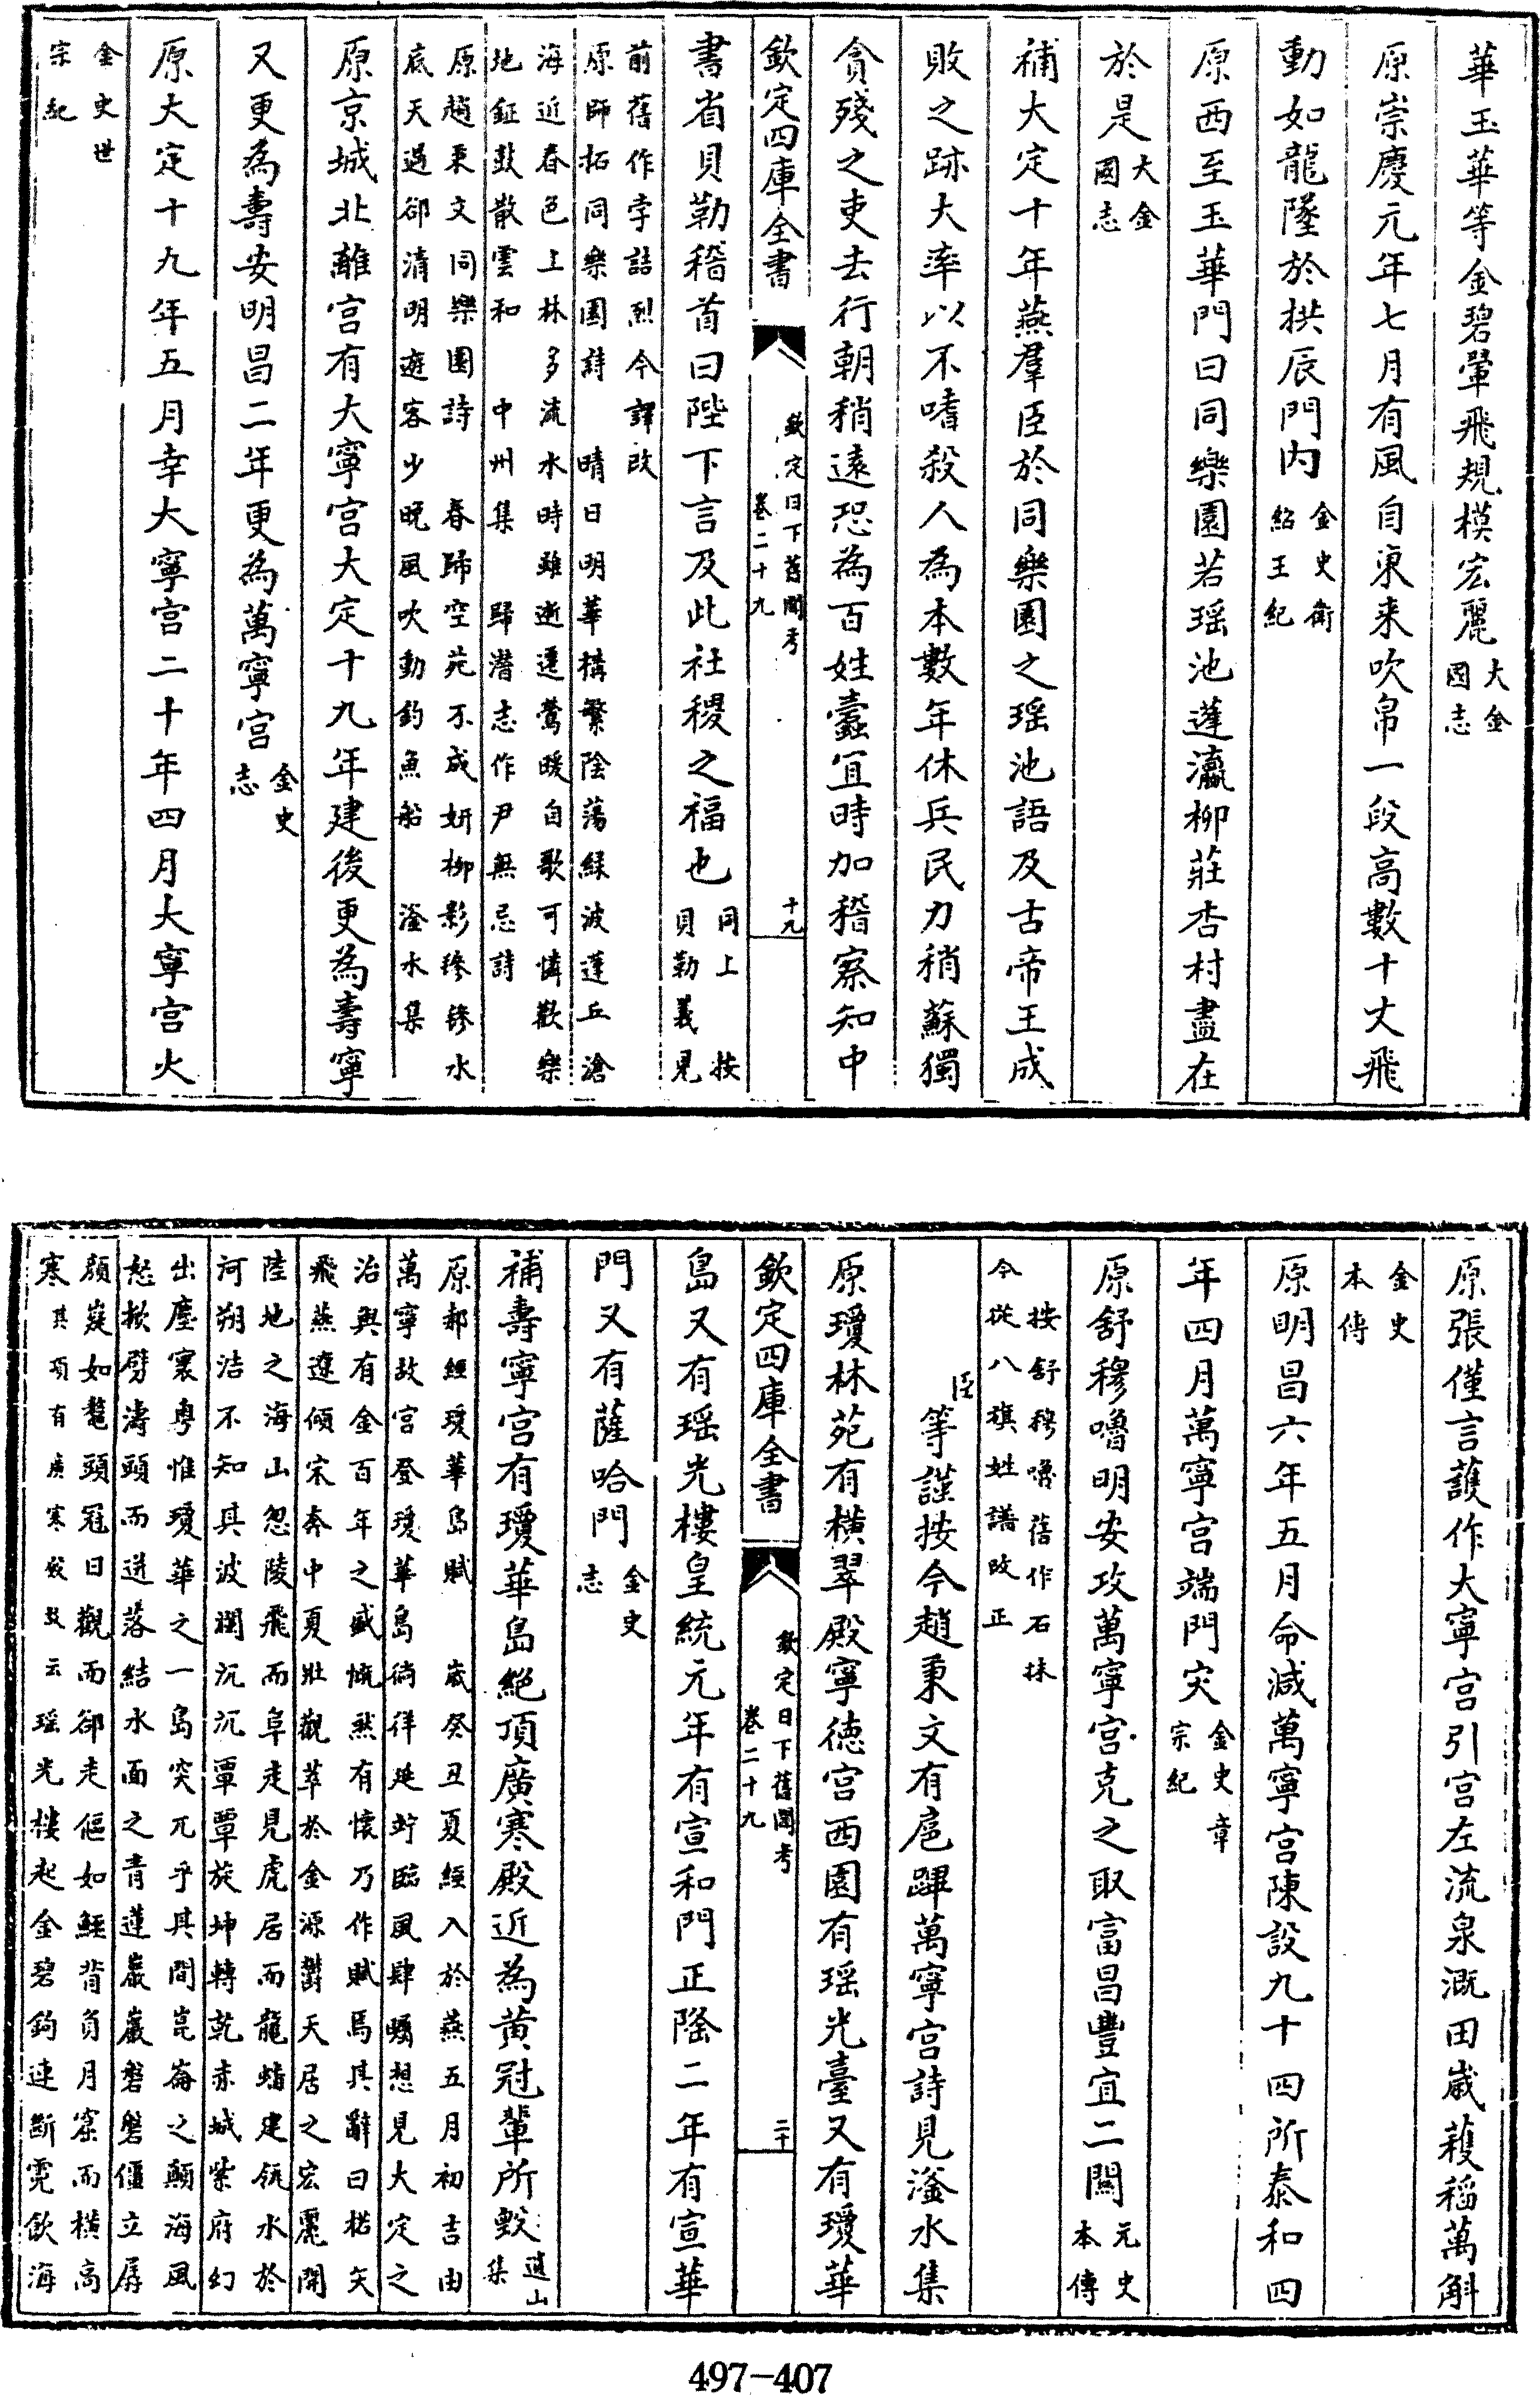 華玉華等金碧翬飛規模宏麗大金國志
原崇慶元年七月有風自東来吹帛一段高數十丈飛
動如龍墜於拱辰門内金史衛紹王紀
原西至玉華門曰同樂園若瑶池蓬瀛柳莊杏村盡在
於是大金國志
補大定十年燕羣臣於同樂園之瑶池語及古帝王成
敗之跡大率以不嗜殺人為本數年休兵民力稍蘇獨
貪殘之吏去行朝稍遠恐為百姓蠹宜時加稽察知中
欽定四庫全書
欽定日下舊聞考
卷二十九
十九
書省貝勒稽首曰陛下言及此社稷之福也同上 按貝勒義見
前舊作孛詰烈今譯改
原師拓同樂園詩 晴日明華構繁陰蕩緑波蓬丘滄
海近春色上林多流水時雖逝遷鶯暖自歌可憐歡樂
地鉦鼓散雲和 中州集 歸潛志作尹無忌詩
原趙秉文同樂園詩 春歸空苑不成妍柳影毿毿水
底天過却清明遊客少晚風吹動釣魚船 滏水集
原京城北離宫有大寧宫大定十九年建後更為壽寧
又更為壽安明昌二年更為萬寧宫金史志
原大定十九年五月幸大寧宫二十年四月大寧宫火
金史世宗紀
原張僅言護作大寧宫引宫左流泉溉田歲穫稻萬斛
金史本傳
原明昌六年五月命減萬寧宫陳設九十四所泰和四
年四月萬寧宫端門灾金史章宗紀
原舒穆嚕明安攻萬寧宫克之取富昌豐宜二關元史本傳
按舒穆嚕舊作石抹
今從八旗姓譜改正
臣等謹按今趙秉文有扈蹕萬寧宫詩見滏水集
原瓊林苑有横翠殿寧徳宫西園有瑶光臺又有瓊華
欽定四庫全書
欽定日下舊聞考
卷二十九
二十
島又有瑶光樓皇統元年有宣和門正隆二年有宣華
門又有薩哈門金史志
補壽寧宫有瓊華島絶頂廣寒殿近為黄冠輩所毁遺山集
原郝經瓊華島賦 歲癸丑夏經入於燕五月初吉由
萬寧故宫登瓊華島徜徉延竚臨風肆矚想見大定之
治與有金百年之盛慨然有懷乃作賦焉其辭曰楛矢
飛燕遼傾宋奔中夏壯觀萃於金源鬱天居之宏麗開
陸地之海山忽陵飛而阜走見虎居而龍蟠建瓴水於
河朔沽不知其波瀾沉沉覃覃旋坤轉乾赤城紫府幻
出塵寰粤惟瓊華之一島突兀乎其間崑崙之顛海風
怒掀劈濤頭而迸落結水面之青蓮巖巖磐磐僵立孱
顔嶷如鼇頭冠日觀而郤走傴如鯨背負月窟而横高
寒其項有廣寒殿故云瑶光樓起金碧鈎連斷霓飲海
497-407